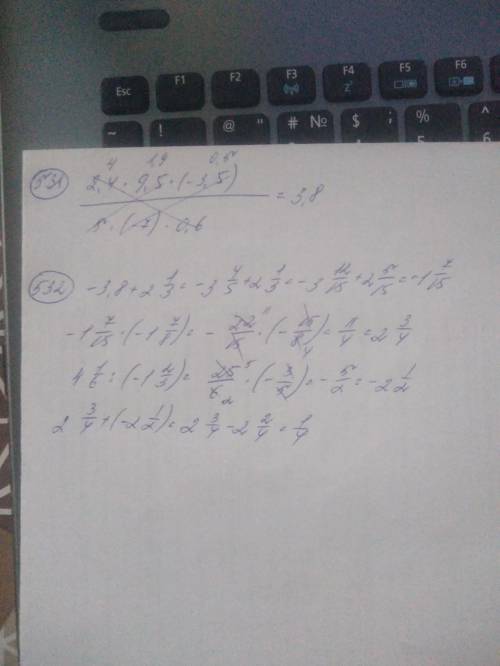 Esc F1 F2 F3 F4 F5 F6
~ ! @ " # № $ ; % ^
531
4 1,9 0,5
2,4 · 9,5 · (-3,5)
= 3,8
5 · (-7) · 0,6
532
-3,8 + 2 1/3 = -3 4/5 + 2 1/3 = -3 12/15 + 2 5/15 = -1 7/15
-1 7/15 · (-1 7/8) = - 22/15 · (- 15/8) = 11/4 = 2 3/4
11 4
4 1/6 : (-1 2/3) = 25/6 · (- 3/5) = - 5/2 = -2 1/2
5 2
2 3/4 + (-2 1/2) = 2 3/4 - 2 2/4 = 1/4